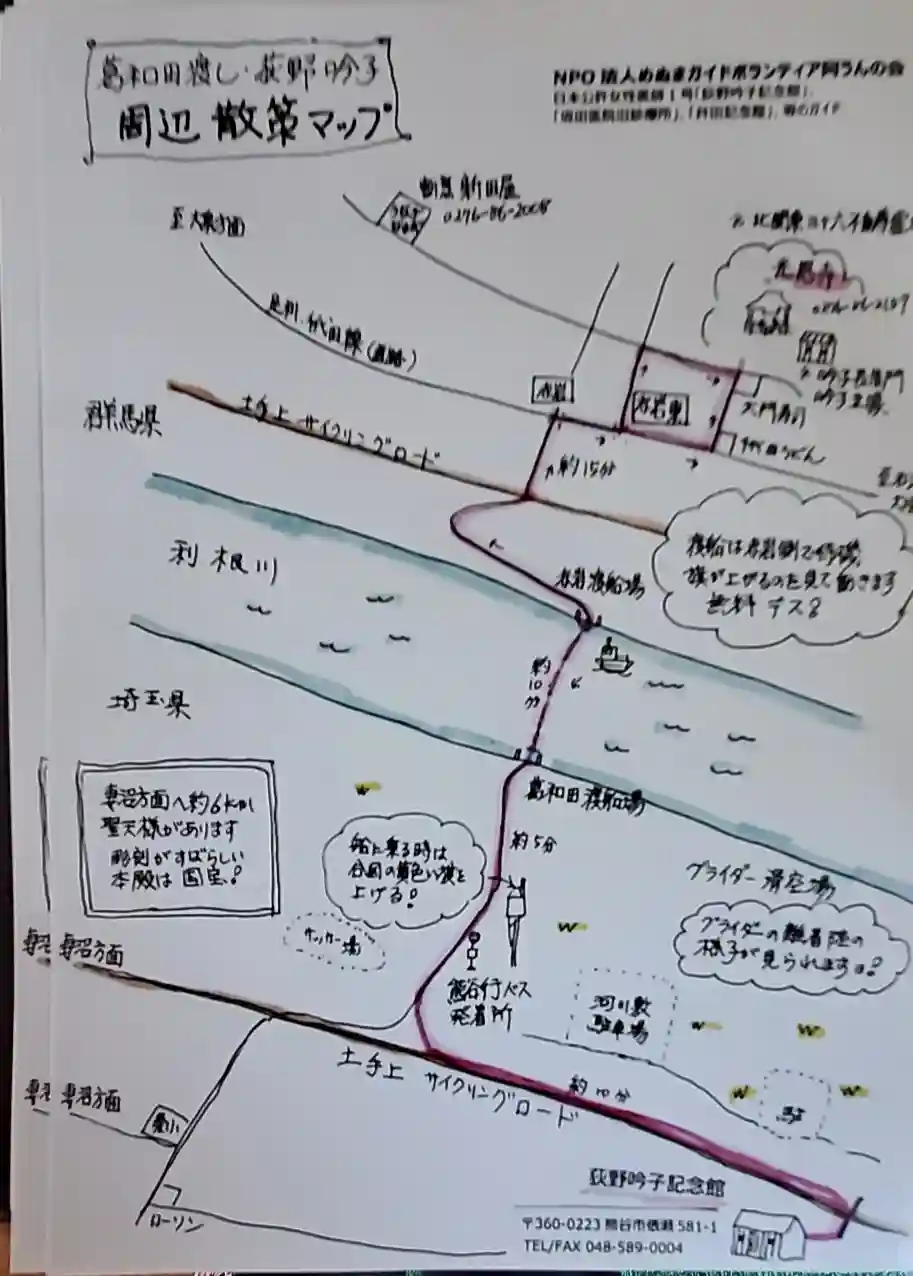 葛和田渡し・荻野吟子
周辺 散策マップ
NPO法人めぬまガイドボランティア阿うんの会
日本公許女性医師1号「荻野吟子記念館」、
等のガイド
新田屋
0276-86-2008
光恩寺
足利・熊谷線(道路)
赤岩
赤岩東
群馬県
土手上 サイクリングロード
約15分
大門寿司
利根川
赤岩渡船場
渡船は赤岩側で待機、
旗が上がるのを見て動きます
無料デス♪
約10分
埼玉県
葛和田渡船場
約5分
妻沼方面へ約6km
聖天様があります
彫刻がすばらしい
本殿は国宝!
船に乗る時は
合図の黄色い旗を
上げる!
グライダー滑空場
グライダーの離着陸の
様子が見られますョ!
サッカー場
妻沼方面
熊谷行バス
発着所
河川敷
駐車場
土手上 サイクリングロード
約10分
駐
妻沼方面
ローソン
荻野吟子記念館
〒360-0223 熊谷市俵瀬 581-1
TEL/FAX 048-589-0004